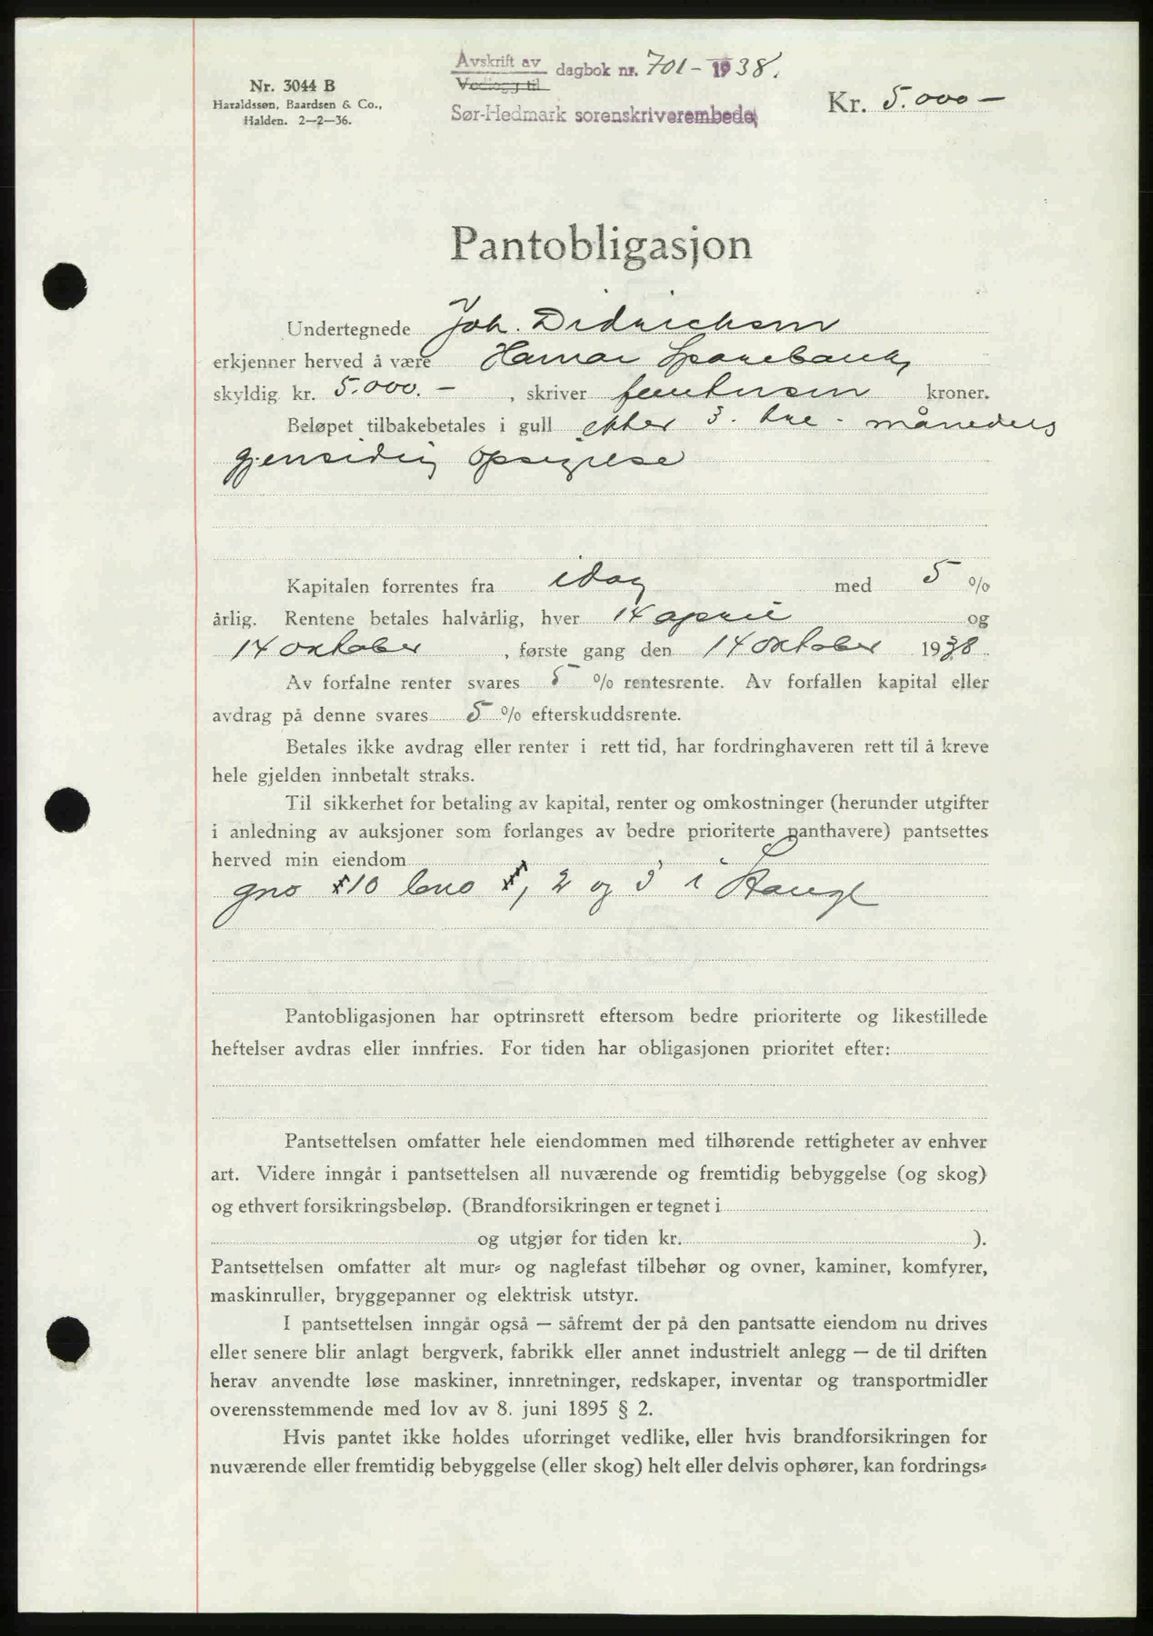 Avskrift av
Vedlegg til
dagbok nr. 701 - 1938.
Sør-Hedmark sorenskriverembede
Nr. 3044 B
Haraldssøn, Baardsen & Co.,
Halden. 2—2—36.
Kr. 5.000 —
Pantobligasjon
Undertegnede Joh. Didrichsen
erkjenner herved å være Hamar Sparebank,
skyldig kr. 5.000. — , skriver femtusen kroner.
Beløpet tilbakebetales i gull efter 3. tre - måneders
gjensidig opsigelse
Kapitalen forrentes fra idag med 5 %
årlig. Rentene betales halvårlig, hver 14 april og
14 oktober , første gang den 14 oktober 1938.
Av forfalne renter svares 5 % rentesrente. Av forfallen kapital eller
avdrag på denne svares 5 % efterskuddsrente.
Betales ikke avdrag eller renter i rett tid, har fordringhaveren rett til å kreve
hele gjelden innbetalt straks.
Til sikkerhet for betaling av kapital, renter og omkostninger (herunder utgifter
i anledning av auksjoner som forlanges av bedre prioriterte panthavere) pantsettes
herved min eiendom
gno 10 bno , 2 og 3 i Stange
Pantobligasjonen har optrinsrett eftersom bedre prioriterte og likestillede
heftelser avdras eller innfries. For tiden har obligasjonen prioritet efter:
Pantsettelsen omfatter hele eiendommen med tilhørende rettigheter av enhver
art. Videre inngår i pantsettelsen all nuværende og fremtidig bebyggelse (og skog)
og ethvert forsikringsbeløp. (Brandforsikringen er tegnet i
og utgjør for tiden kr. ).
Pantsettelsen omfatter alt mur- og naglefast tilbehør og ovner, kaminer, komfyrer,
maskinruller, bryggepanner og elektrisk utstyr.
I pantsettelsen inngår også — såfremt der på den pantsatte eiendom nu drives
eller senere blir anlagt bergverk, fabrikk eller annet industrielt anlegg — de til driften
herav anvendte løse maskiner, innretninger, redskaper, inventar og transportmidler
overensstemmende med lov av 8. juni 1895 § 2.
Hvis pantet ikke holdes uforringet vedlike, eller hvis brandforsikringen for
nuværende eller fremtidig bebyggelse (eller skog) helt eller delvis ophører, kan fordrings-